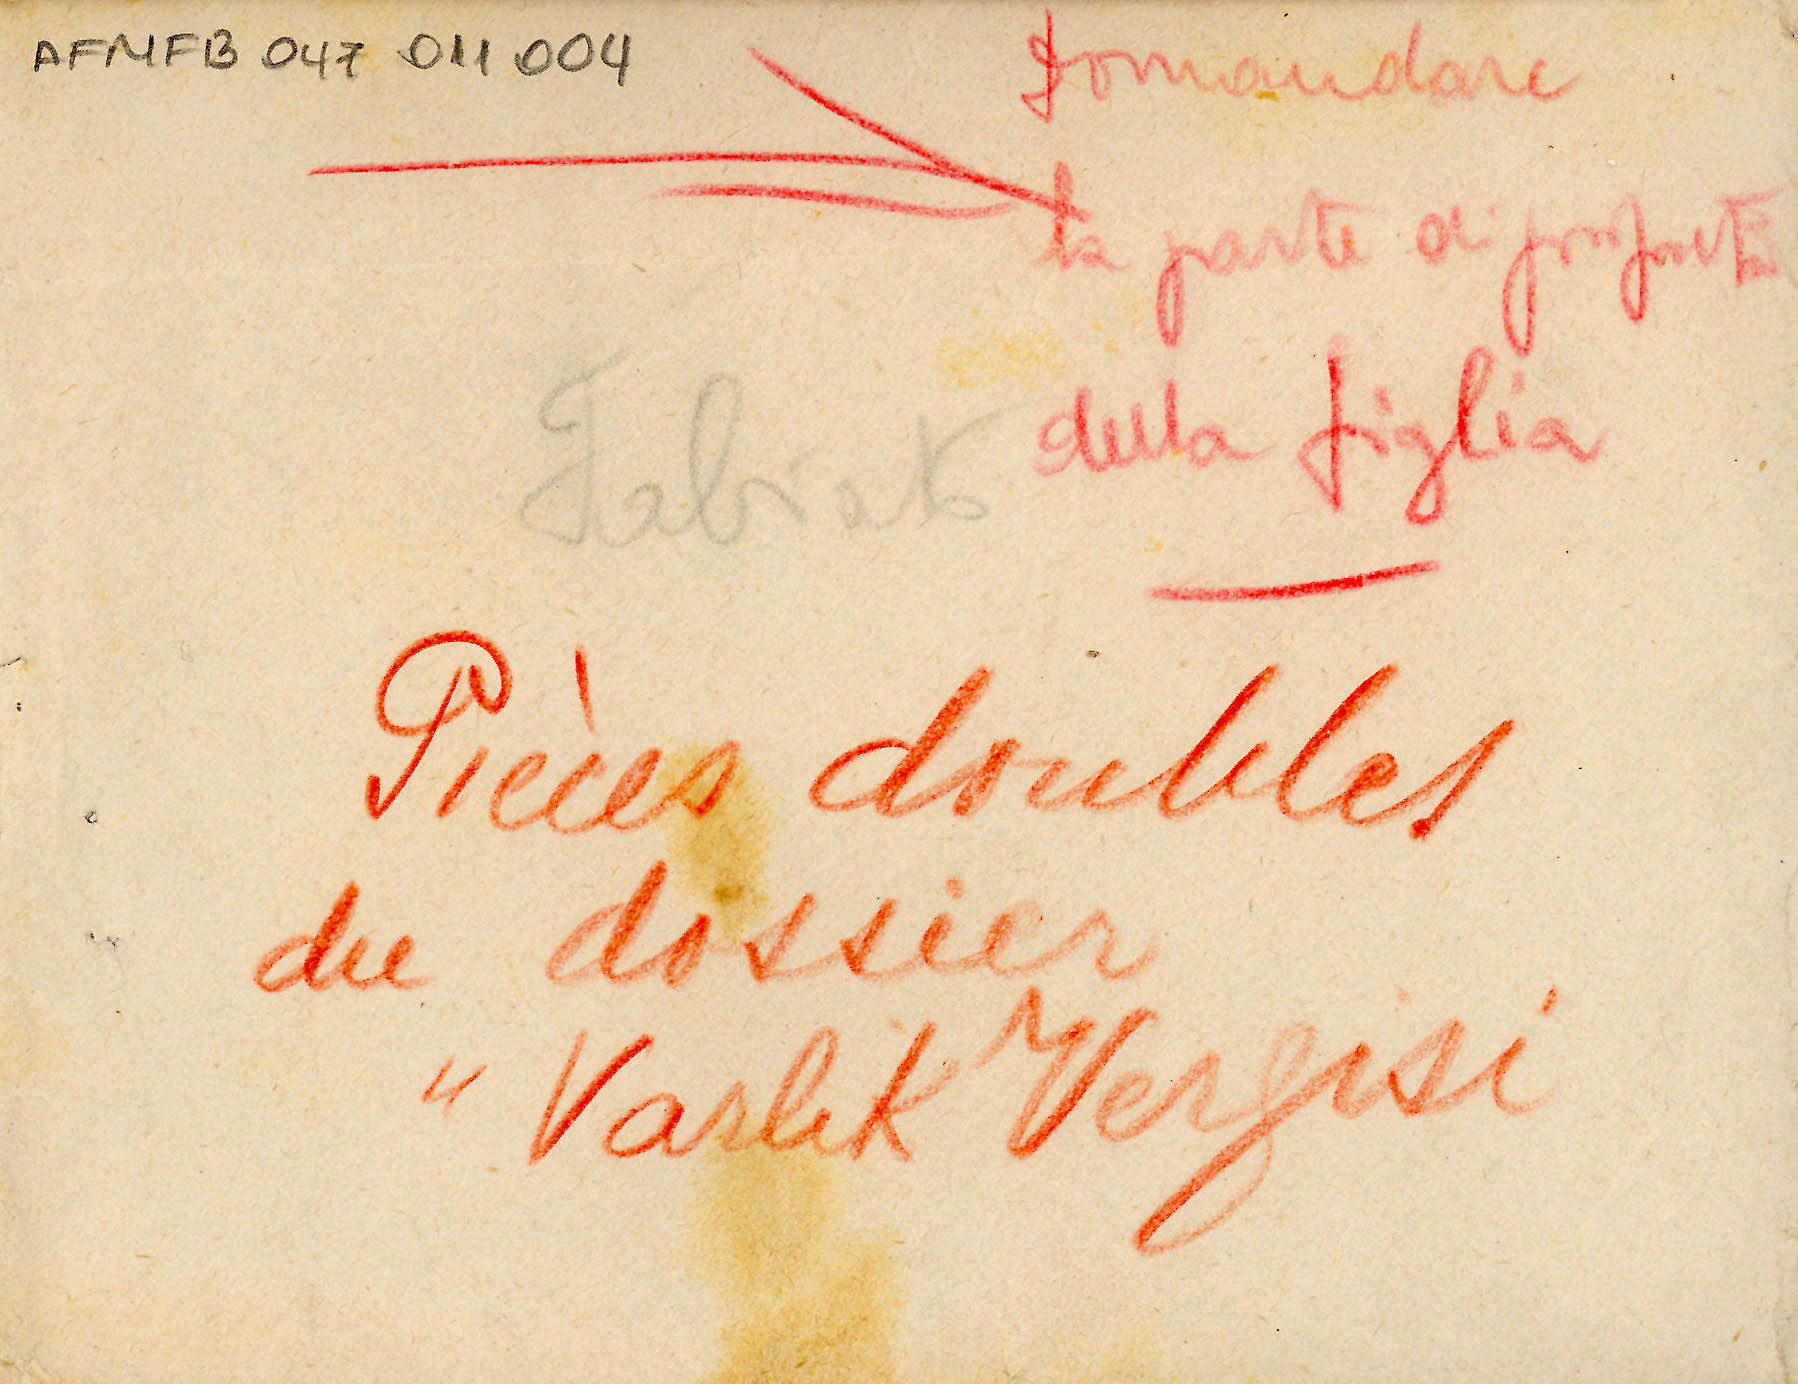 AFMFB 047 011 004
Domandare
la parte di proprietà
della figlia
Pièces doubles
du dossier
"Varlik Vergisi